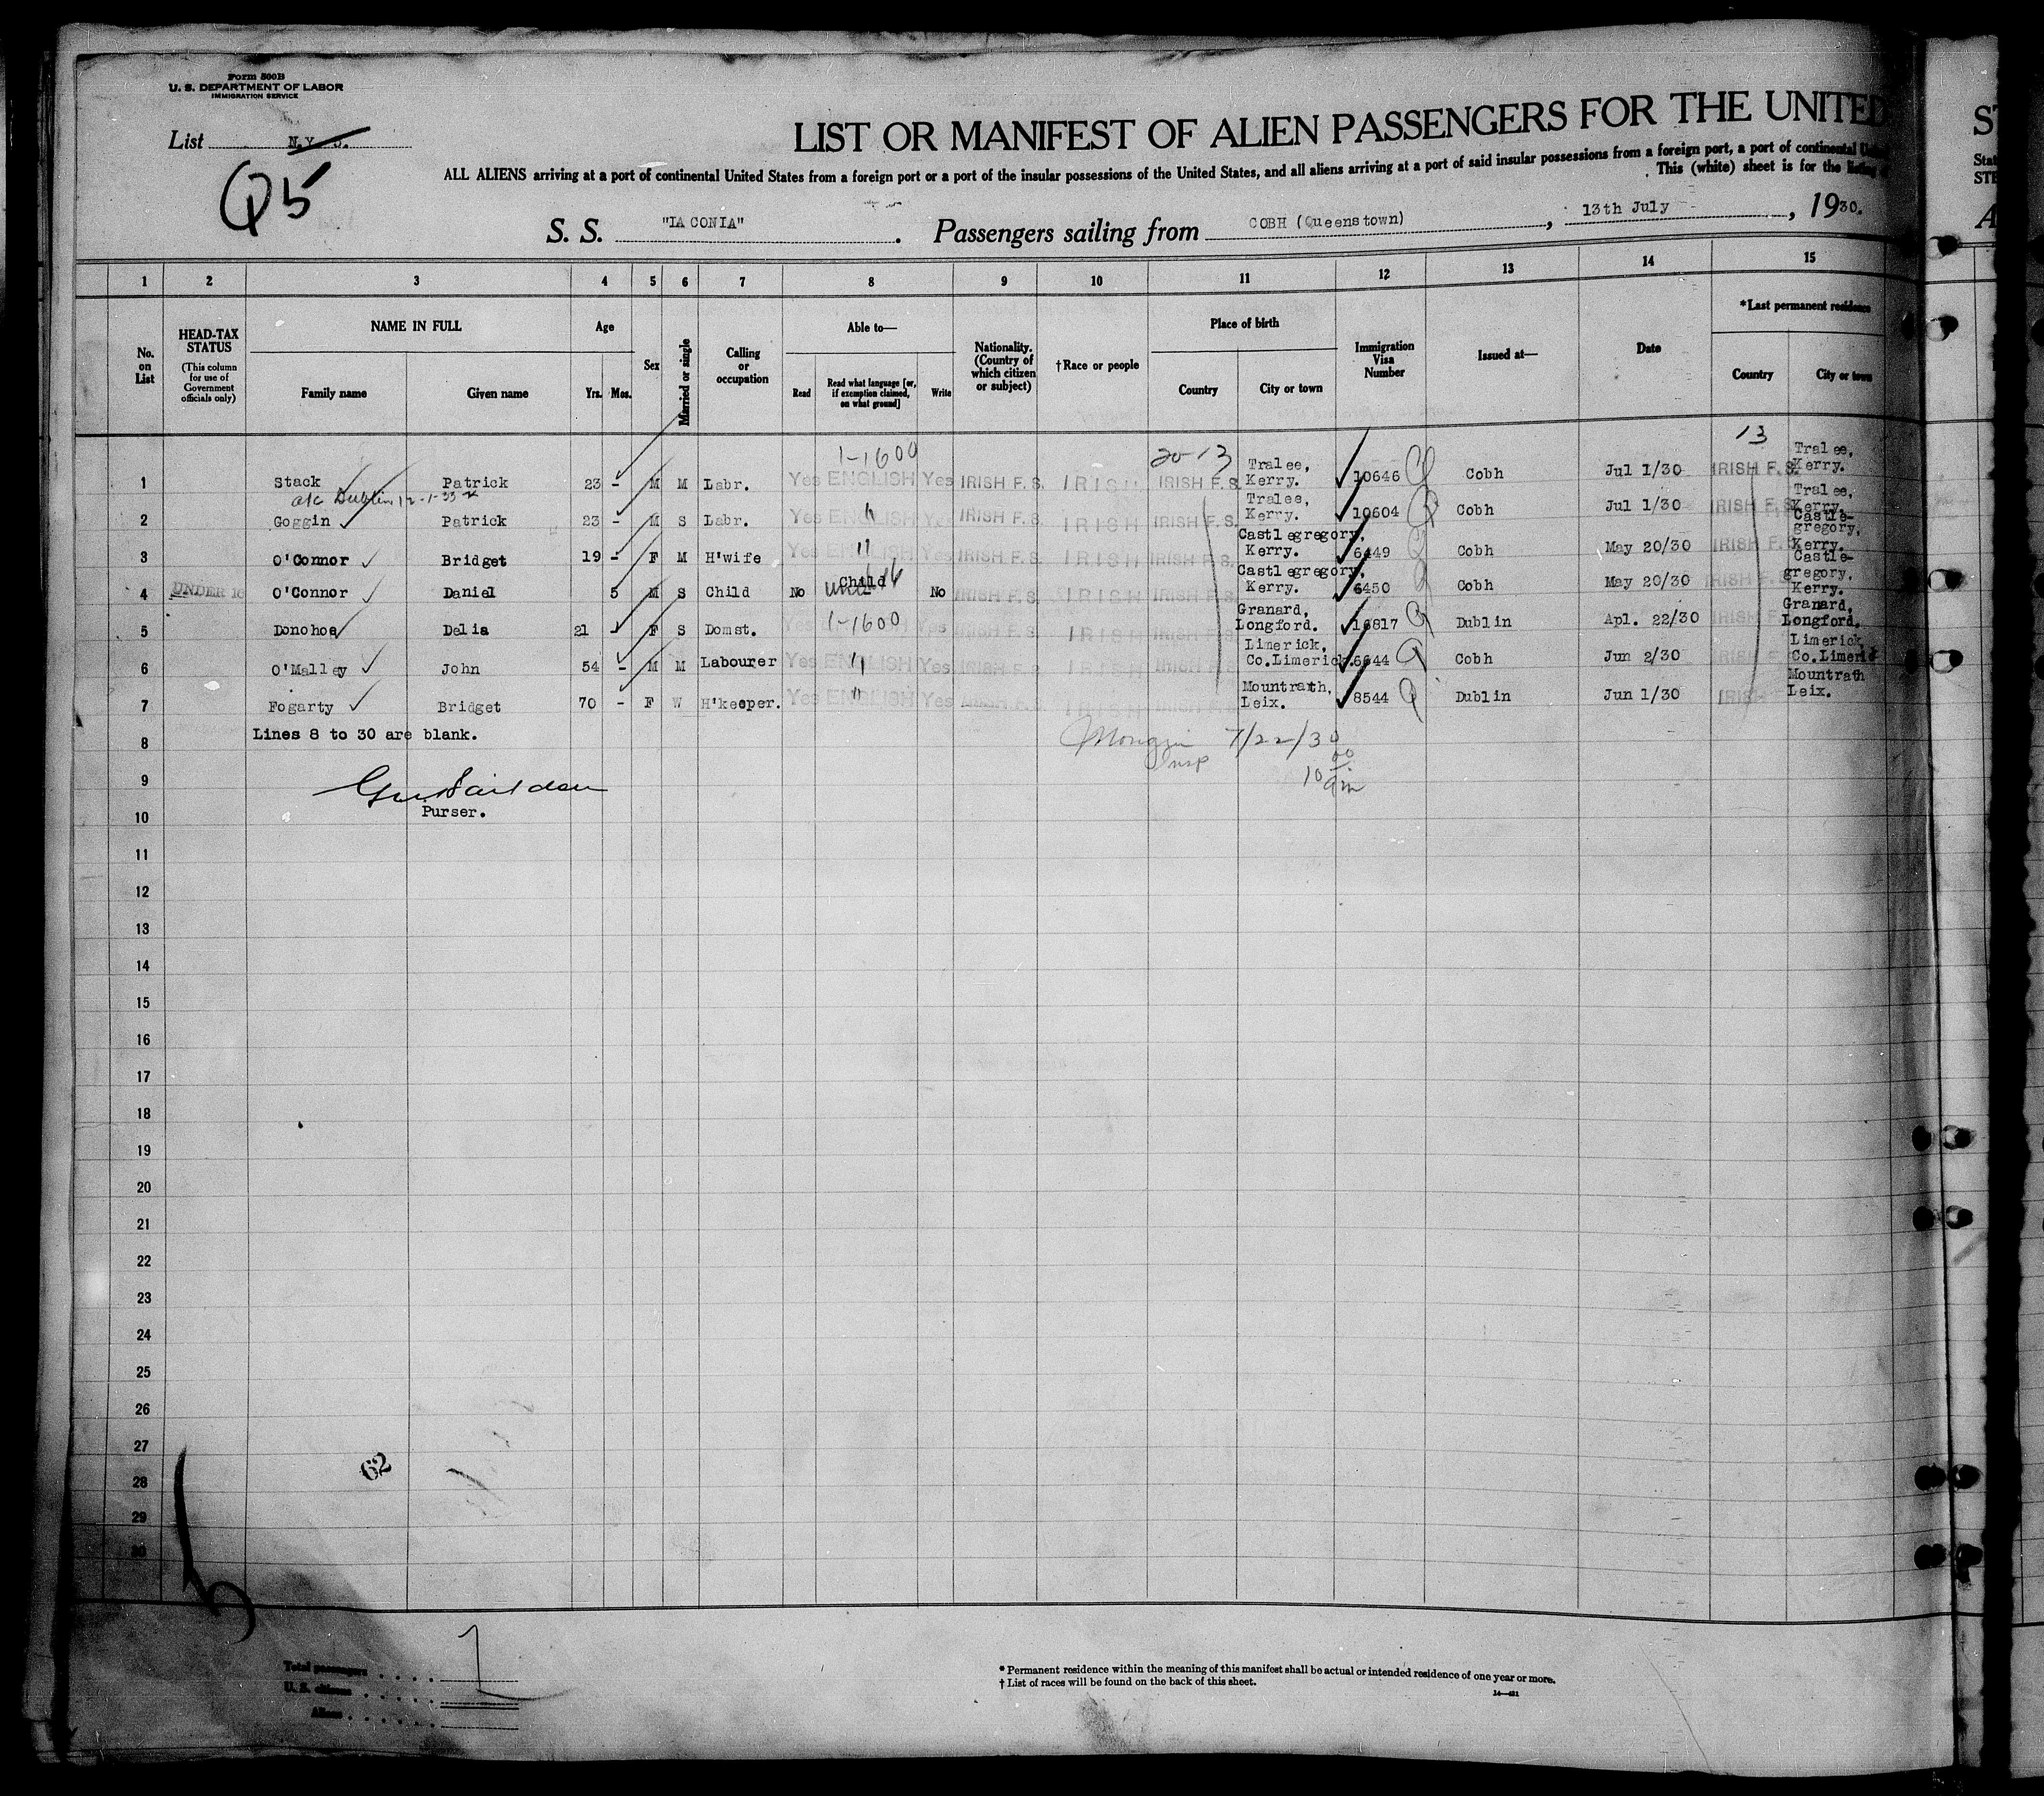 Form 500B
U. S. DEPARTMENT OF LABOR
IMMIGRATION SERVICE
List N.Y. 5.
Q5
LIST OR MANIFEST OF ALIEN PASSENGERS FOR THE UNITED
ALL ALIENS arriving at a port of continental United States from a foreign port or a port of the insular possessions of the United States, and all aliens arriving at a port of said insular possessions from a foreign port, a port of continental
This (white) sheet is for the listing
S. S. "LACONIA" . Passengers sailing from COBH (Queenstown) , 13th July , 1930.
1 2 3 4 5 6 7 8 9 10 11 12 13 14 15
No. on List
HEAD-TAX STATUS (This column for use of Government officials only)
NAME IN FULL Family name Given name
Age Yrs. Mos.
Sex
Married or single
Calling or occupation
Able to— Read Read what language [or, if exemption claimed, on what ground] Write
Nationality. (Country of which citizen or subject)
†Race or people
Place of birth Country City or town
Immigration Visa Number
Issued at—
Date
*Last permanent residence Country City or town
1-1600 20-13 13
1 Stack Patrick 23 - M M Labr. Yes ENGLISH Yes IRISH F. S. IRISH IRISH F. S. Tralee, Kerry. 10646 Cobh Jul 1/30 IRISH F. S. Tralee, Kerry.
a/c Dublin 12-1-33
2 Goggin Patrick 23 - M S Labr. Yes ENGLISH Yes IRISH F. S. IRISH IRISH F. S. Tralee, Kerry. 10604 Cobh Jul 1/30 IRISH F. S. Tralee, Kerry.
3 O'Connor Bridget 19 - F M H'wife Yes ENGLISH Yes IRISH F. S. IRISH IRISH F. S. Castlegregory, Kerry. 6449 Cobh May 20/30 IRISH F. S. Castle-gregory, Kerry.
4 UNDER 16 O'Connor Daniel 5 M S Child No Child No IRISH F. S. IRISH IRISH F. S. Castlegregory, Kerry. 6450 Cobh May 20/30 IRISH F. S. Castle-gregory, Kerry.
5 Donohoe Delia 21 - F S Domst. Yes ENGLISH 1-1600 Yes IRISH F. S. IRISH IRISH F. S. Granard, Longford. 16817 Dublin Apl. 22/30 IRISH F. S. Granard, Longford.
6 O'Malley John 54 - M M Labourer Yes ENGLISH Yes IRISH F. S. IRISH IRISH F. S. Limerick, Co.Limerick. 6644 Cobh Jun 2/30 IRISH F. S. Limerick, Co.Limerick
7 Fogarty Bridget 70 - F W H'keeper. Yes ENGLISH Yes IRISH F. S. IRISH IRISH F. S. Mountrath, Leix. 8544 Dublin Jun 1/30 IRISH Mountrath Leix.
8 Lines 8 to 30 are blank. 7/22/30
Insp
9
Purser.
10
11
12
13
14
15
16
17
18
19
20
21
22
23
24
25
26
27
62
28
29
30
Total passengers . . . . 7
U. S. citizens . . . . .
Aliens . . . . . .
* Permanent residence within the meaning of this manifest shall be actual or intended residence of one year or more.
† List of races will be found on the back of this sheet.
14—421